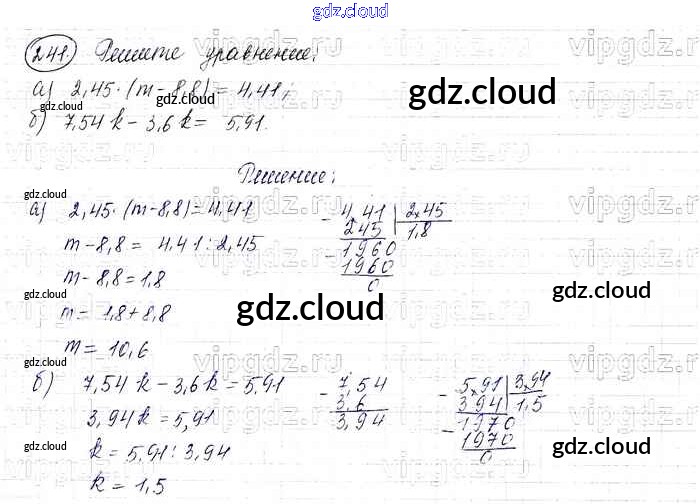 gdz.cloud
241. Решите уравнение:
а) 2,45·(m-8,8)=4,41;
б) 7,54k-3,6k= 5,91.
Решение:
а) 2,45·(m-8,8)=4,41
m-8,8= 4,41:2,45
m-8,8=1,8
m= 1,8+8,8
m= 10,6
- 4,41 | 2,45
245 | 1,8
- 1960
1960
0
б) 7,54k-3,6k=5,91
3,94k=5,91
k= 5,91:3,94
k= 1,5
- 7,54
3,6
3,94
- 5,91 | 3,94
3,94 | 1,5
- 1970
1970
0
gdz.cloud
gdz.cloud
gdz.cloud
gdz.cloud
gdz.cloud
gdz.cloud
gdz.cloud
gdz.cloud
gdz.cloud
vipgdz.ru